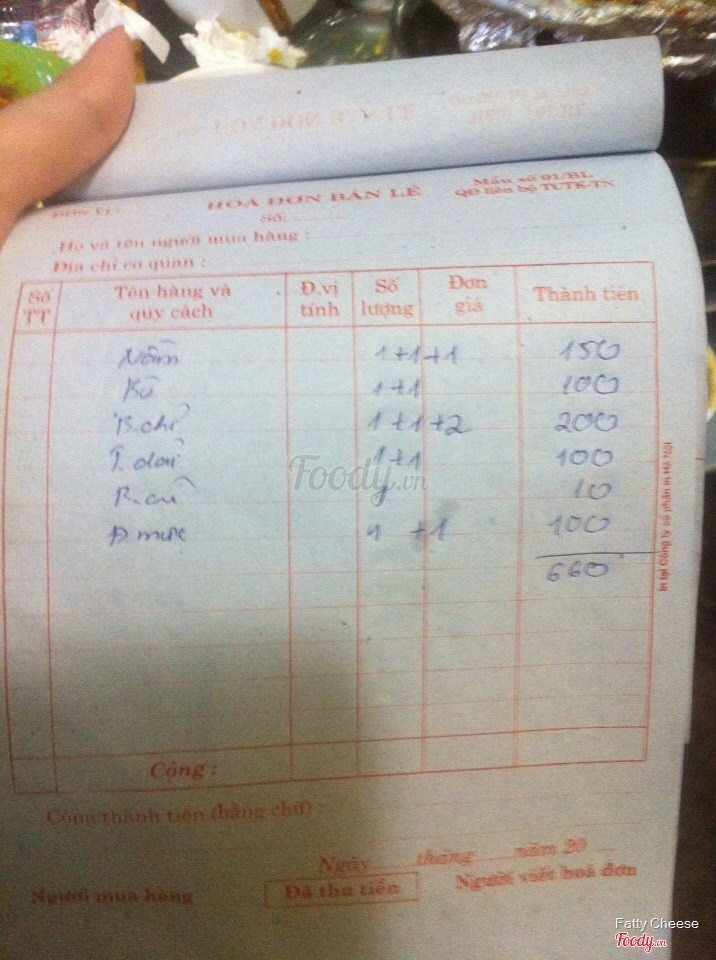 HOÁ ĐƠN BÁN LẺ
Mẫu số 01/BL
QĐ liên bộ TCTK-TN
ĐƠN VỊ:
Số:
Họ và tên người mua hàng :
Địa chỉ cơ quan :
Số TT Tên hàng và quy cách Đ.vị tính Số lượng Đơn giá Thành tiền
Nầm 1+1+1 150
Bò 1+1 100
B.chỉ 1+1+2 200
1+1 100
10
Đ.mực 1+1 100
660
Cộng :
Cộng thành tiền (bằng chữ) :
Ngày tháng năm 20
Người mua hàng Đã thu tiền Người viết hoá đơn
Foody.vn
Fatty Cheese
Foody.vn